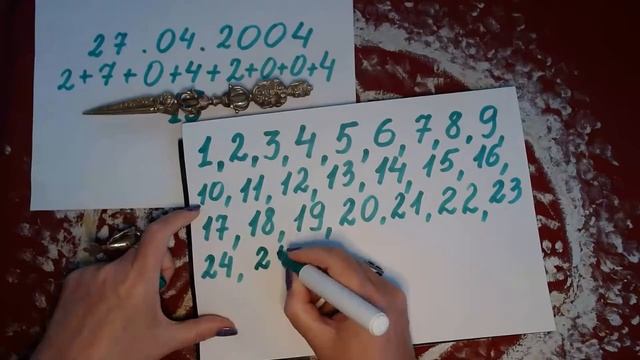 27.04.2004
2+7+0+4+2+0+0+4
1, 2, 3, 4, 5, 6, 7, 8, 9,
10, 11, 12, 13, 14, 15, 16,
17, 18, 19, 20, 21, 22, 23
24, 2